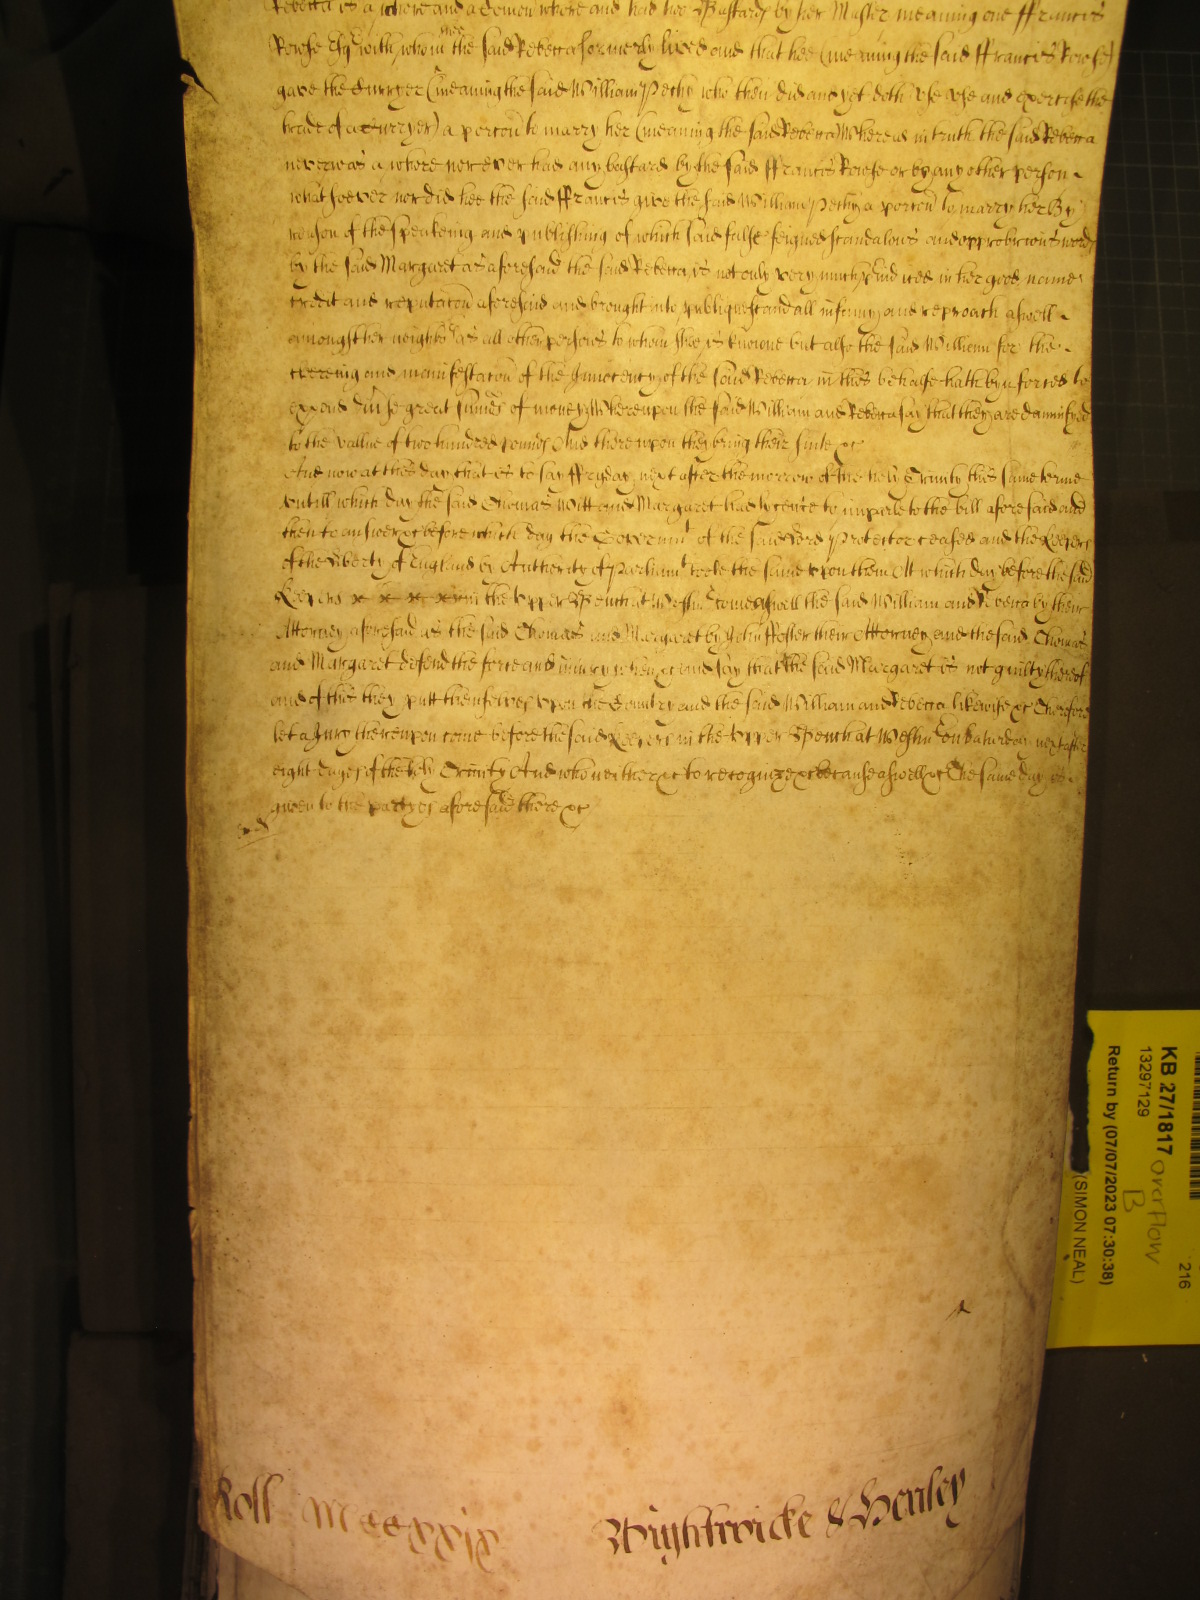 Rebecca is a whore and a Comon whore and had two Bastards by her Master meaning one ffrancis
Rowse Esq with whom shee the said Rebecca formerly lived and that hee (meaning the said ffrancis Rowse)
gave the Curryer (meaning the said William Pechy who then did and yet doth use and exercise the
trade of a Curryer) a porcon to marry her (meaning the said Rebecca) Whereas in truth the said Rebecca
never was a whore nor ever had any bastard by the said ffrancis Rowse or by any other person
whatsoever nor did hee the said ffrancis give the said William Pechy a porcon to marry her By
reason of the speakeing and publishing of which said false feigned scandalous and opprobrious words
by the said Margaret as aforesaid the said Rebecca is not only very much in her good name
credit and reputacon aforesaid and brought into publique scandall infamy and reproach aswell
amongst her neighbrs as all other persons to whom shee is knowne but also the said William for the
cleering and manifestacon of the Innocency of the said Rebecca in this behalfe hath byn forced to
expend divse great sumes of money Whereupon the said William and Rebecca say that they are damnifyed
to the vallue of two hundred pounds And thereupon they bring their suite &c
And now at this day that is to say ffryday next after the morrow of the holy Trinity this same terme
untill which day the said Thomas Witt and Margaret had lycence to imparle to the bill aforesaid and
then to answere &c before which day the Governmt of the said Lord Protector ceased and the Keepers
of the liberty of England by Authority of Parliamt tooke the same upon them At which day before the said
Keepers in the Upper Bench at Westmr come aswell the said William and Rebecca by their
Attorney aforesaid as the said Thomas and Margaret by John ffoster their Attorney and the said Thomas
and Margaret defend the force and injury when &c and say that the said Margaret is not guilty thereof
and of this they putt themselves upon the Country and the said William and Rebecca likewise &c Therefore
let a Jury thereupon come before the said Keepers in the Upper Bench at Westmr on Saturday next after
eight dayes of the holy Trinity And who neither &c to recognize &c because aswell &c The same day is
given to the partyes aforesaid there &c
Roll MCCCXXIX Wightwicke & Henley
KB 27/1817 overflow B
13297129
Return by (07/07/2023 07:30:38)
(SIMON NEAL)
216